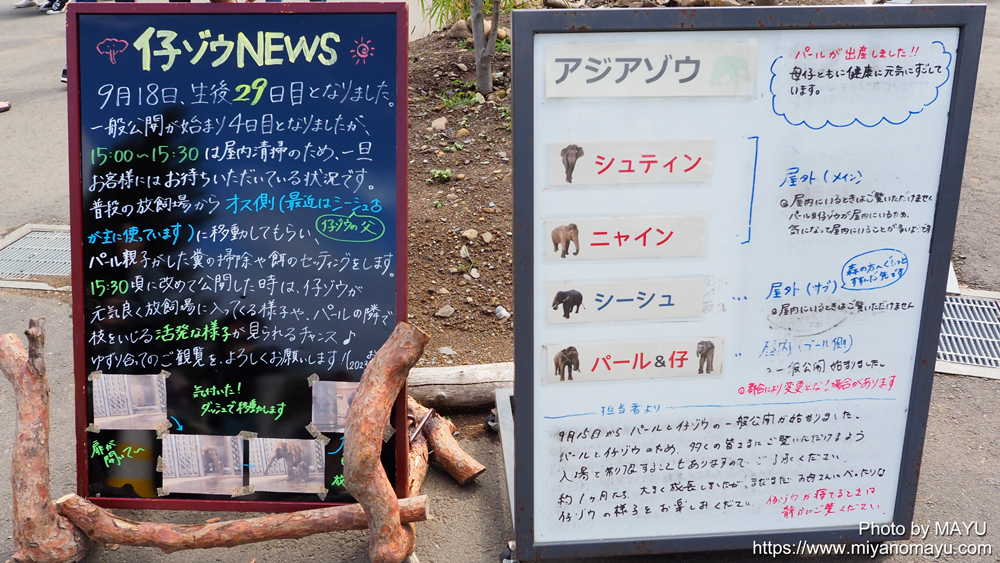 仔ゾウNEWS
9月18日、生後29日目となりました。
一般公開が始まり4日目となりましたが、
15:00～15:30は屋内清掃のため、一旦
お客様にはお待ちいただいている状況です。
普段の放飼場からオス側(最近はシーシュ
が主に使っています)に移動してもらい、
仔ゾウの父
パール親子がした糞の掃除や餌のセッティングをします。
15:30頃に改めて公開した時は、仔ゾウが
元気良く放飼場に入ってくる様子や、パールの隣で
枝をいじる活発な様子が見られるチャンス♪
ゆずり合ってのご観覧を、よろしくお願いします!
気付いた!
ダッシュで移動します
扉が
開いて～
アジアゾウ
パールが出産しました!!
母仔ともに健康に元気にすごして
います。
シュティン
ニャイン
シーシュ
パール&仔
屋外(メイン)
屋内にいるときはご覧いただけません
パール&仔ゾウが屋内にいるため、
気になって屋内にいることが多いようです
森の方へぐるっと
すすんだ先です
屋外(サブ)
屋内にいるときはご覧いただけません
屋内(プール側)
一般公開始まりました。
都合により変更となる場合があります
担当者より
9月15日からパールと仔ゾウの一般公開が始まりました。
パールと仔ゾウのため、多くの皆さまにご覧いただけるよう
入場を制限することもありますので、ご了承ください。
約1ヶ月たち、大きく成長しましたが、まだまだお母さんにべったりな
仔ゾウの様子をお楽しみください。
仔ゾウが寝てるときは
静かにご覧ください。
Photo by MAYU
https://www.miyanomayu.com/